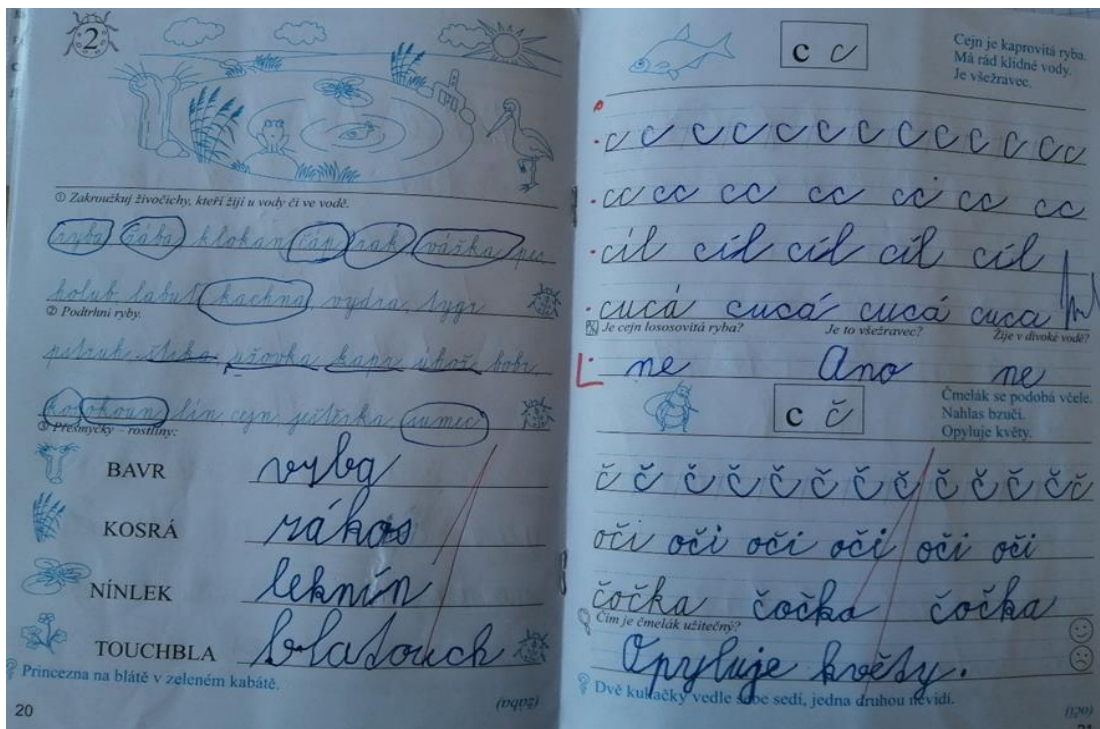 2
① Zakroužkuj živočichy, kteří žijí u vody či ve vodě.
ryba žába klokan čáp rak vážka pes
holub labuť kachna vydra tygr
② Podtrhni ryby.
pstruh štika užovka kapr úhoř bobr
kos okoun lín cejn ještěrka sumec
③ Přesmyčky – rostliny:
BAVR vyba
KOSRÁ rákos
NÍNLEK leknín
TOUCHBLA blatouch
Princezna na blátě v zeleném kabátě.
(žába)
20
c c
Cejn je kaprovitá ryba.
Má rád klidné vody.
Je všežravec.
c c c c c c c c c c cc
cc cc cc cc cc cc cc
cíl cíl cíl cíl cíl
cucá cucá cucá cuca
Je cejn lososovitá ryba? Je to všežravec? Žije v divoké vodě?
ne Ano ne
c č
Čmelák se podobá včele.
Nahlas bzučí.
Opyluje květy.
č č č č č č č č č č č č
oči oči oči oči oči oči
čočka čočka čočka
Čím je čmelák užitečný?
Opyluje květy.
Dvě kukačky vedle sebe sedí, jedna druhou nevidí.
(oči)
21